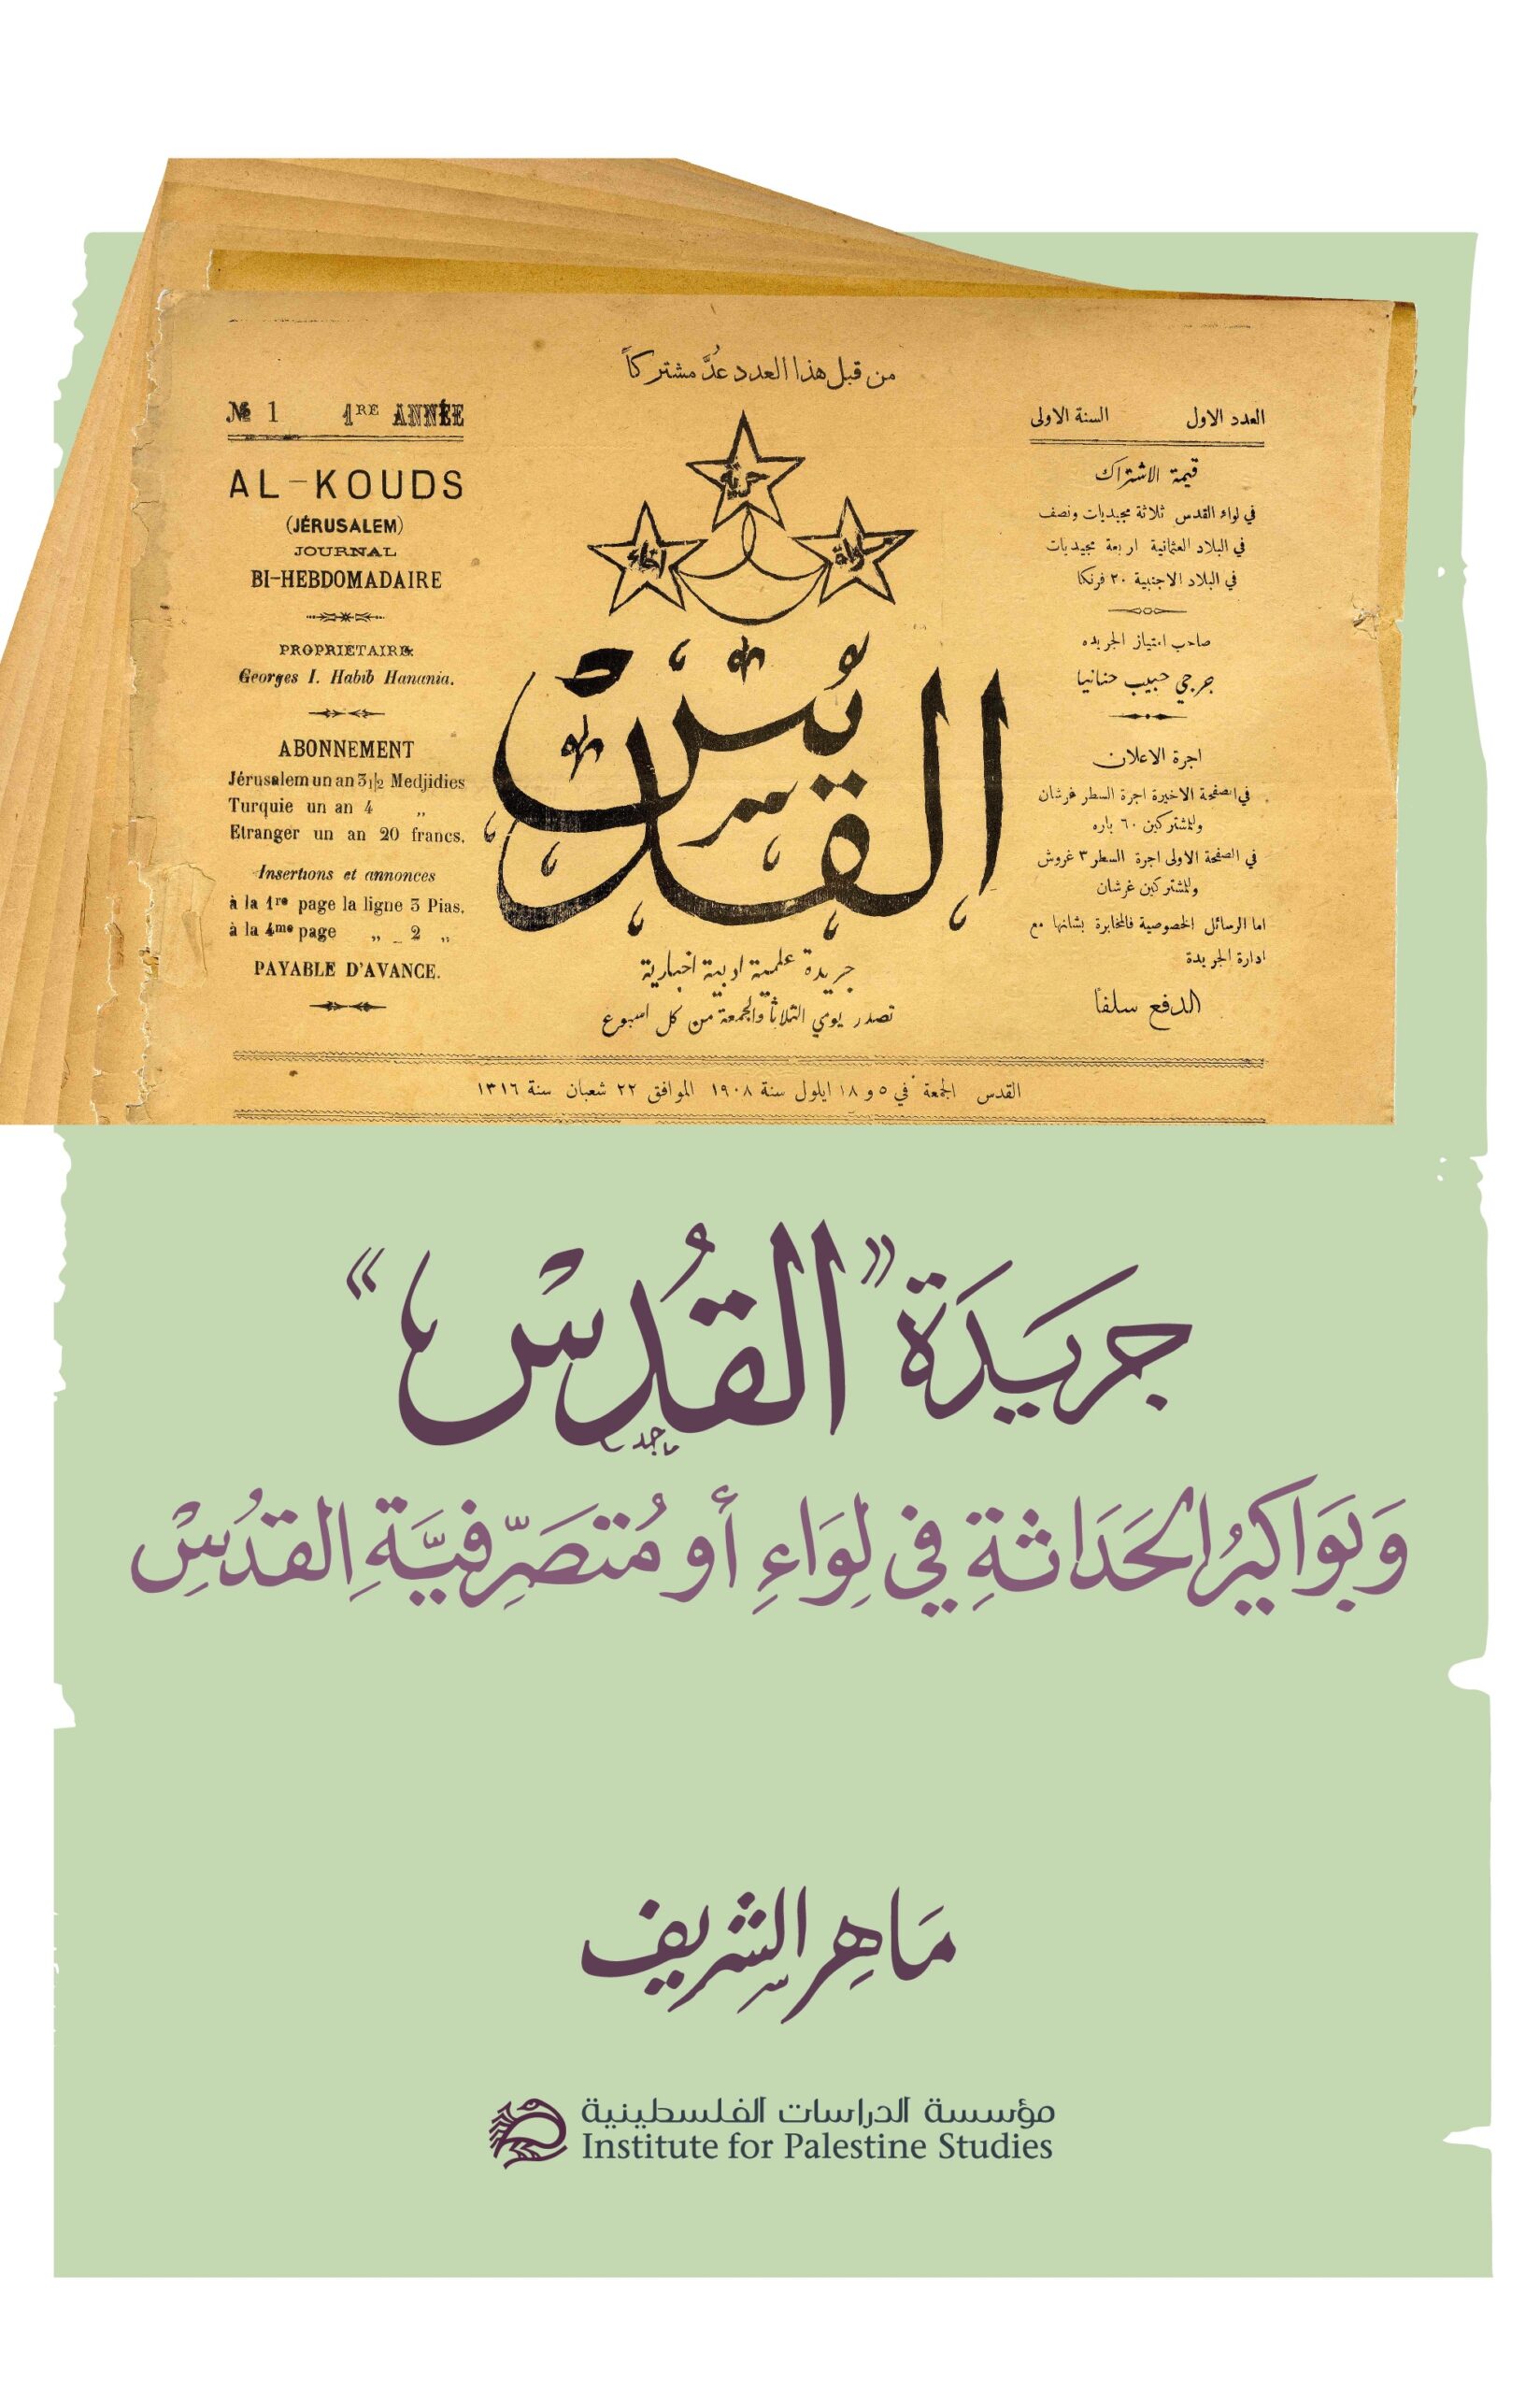 من قبل هذا العدد عُدَّ مشتركاً
№ 1 1RE ANNÉE
AL-KOUDS
(JÉRUSALEM)
JOURNAL
BI-HEBDOMADAIRE
PROPRIÉTAIRE
Georges I. Habib Hanania.
ABONNEMENT
Jérusalem un an 3 1/2 Medjidies
Turquie un an 4 „
Etranger un an 20 francs.
Insertions et annonces
à la 1re page la ligne 3 Pias.
à la 4me page „ 2 „
PAYABLE D'AVANCE.
حرية
مساواة
اخاء
القدس
جريدة علمية ادبية اخبارية
تصدر يومي الثلاثا والجمعة من كل اسبوع
العدد الاول السنة الاولى
قيمة الاشتراك
في لواء القدس ثلاثة مجيديات ونصف
في البلاد العثمانية اربعة مجيديات
في البلاد الاجنبية ٢٠ فرنكا
صاحب امتياز الجريده
جرجي حبيب حنانيا
اجرة الاعلان
في الصفحة الاخيرة اجرة السطر غرشان
وللمشتركين ٦٠ باره
في الصفحة الاولى اجرة السطر ٣ غروش
وللمشتركين غرشان
اما الرسائل الخصوصية فالمخابرة بشانها مع
ادارة الجريدة
الدفع سلفا
القدس الجمعة في ٥ و ١٨ ايلول سنة ١٩٠٨ الموافق ٢٢ شعبان سنة ١٣١٦
جَريَدَة "القُدْسْ"
ماجد
وَبَوَاكيرُ الحَدَاثةِ في لِوَاءِ أو مُتصَرِّفيَّةِ القدُسِْ
مَاهِر الشِريف
مؤسسة الدراسات الفلسطينية
Institute for Palestine Studies